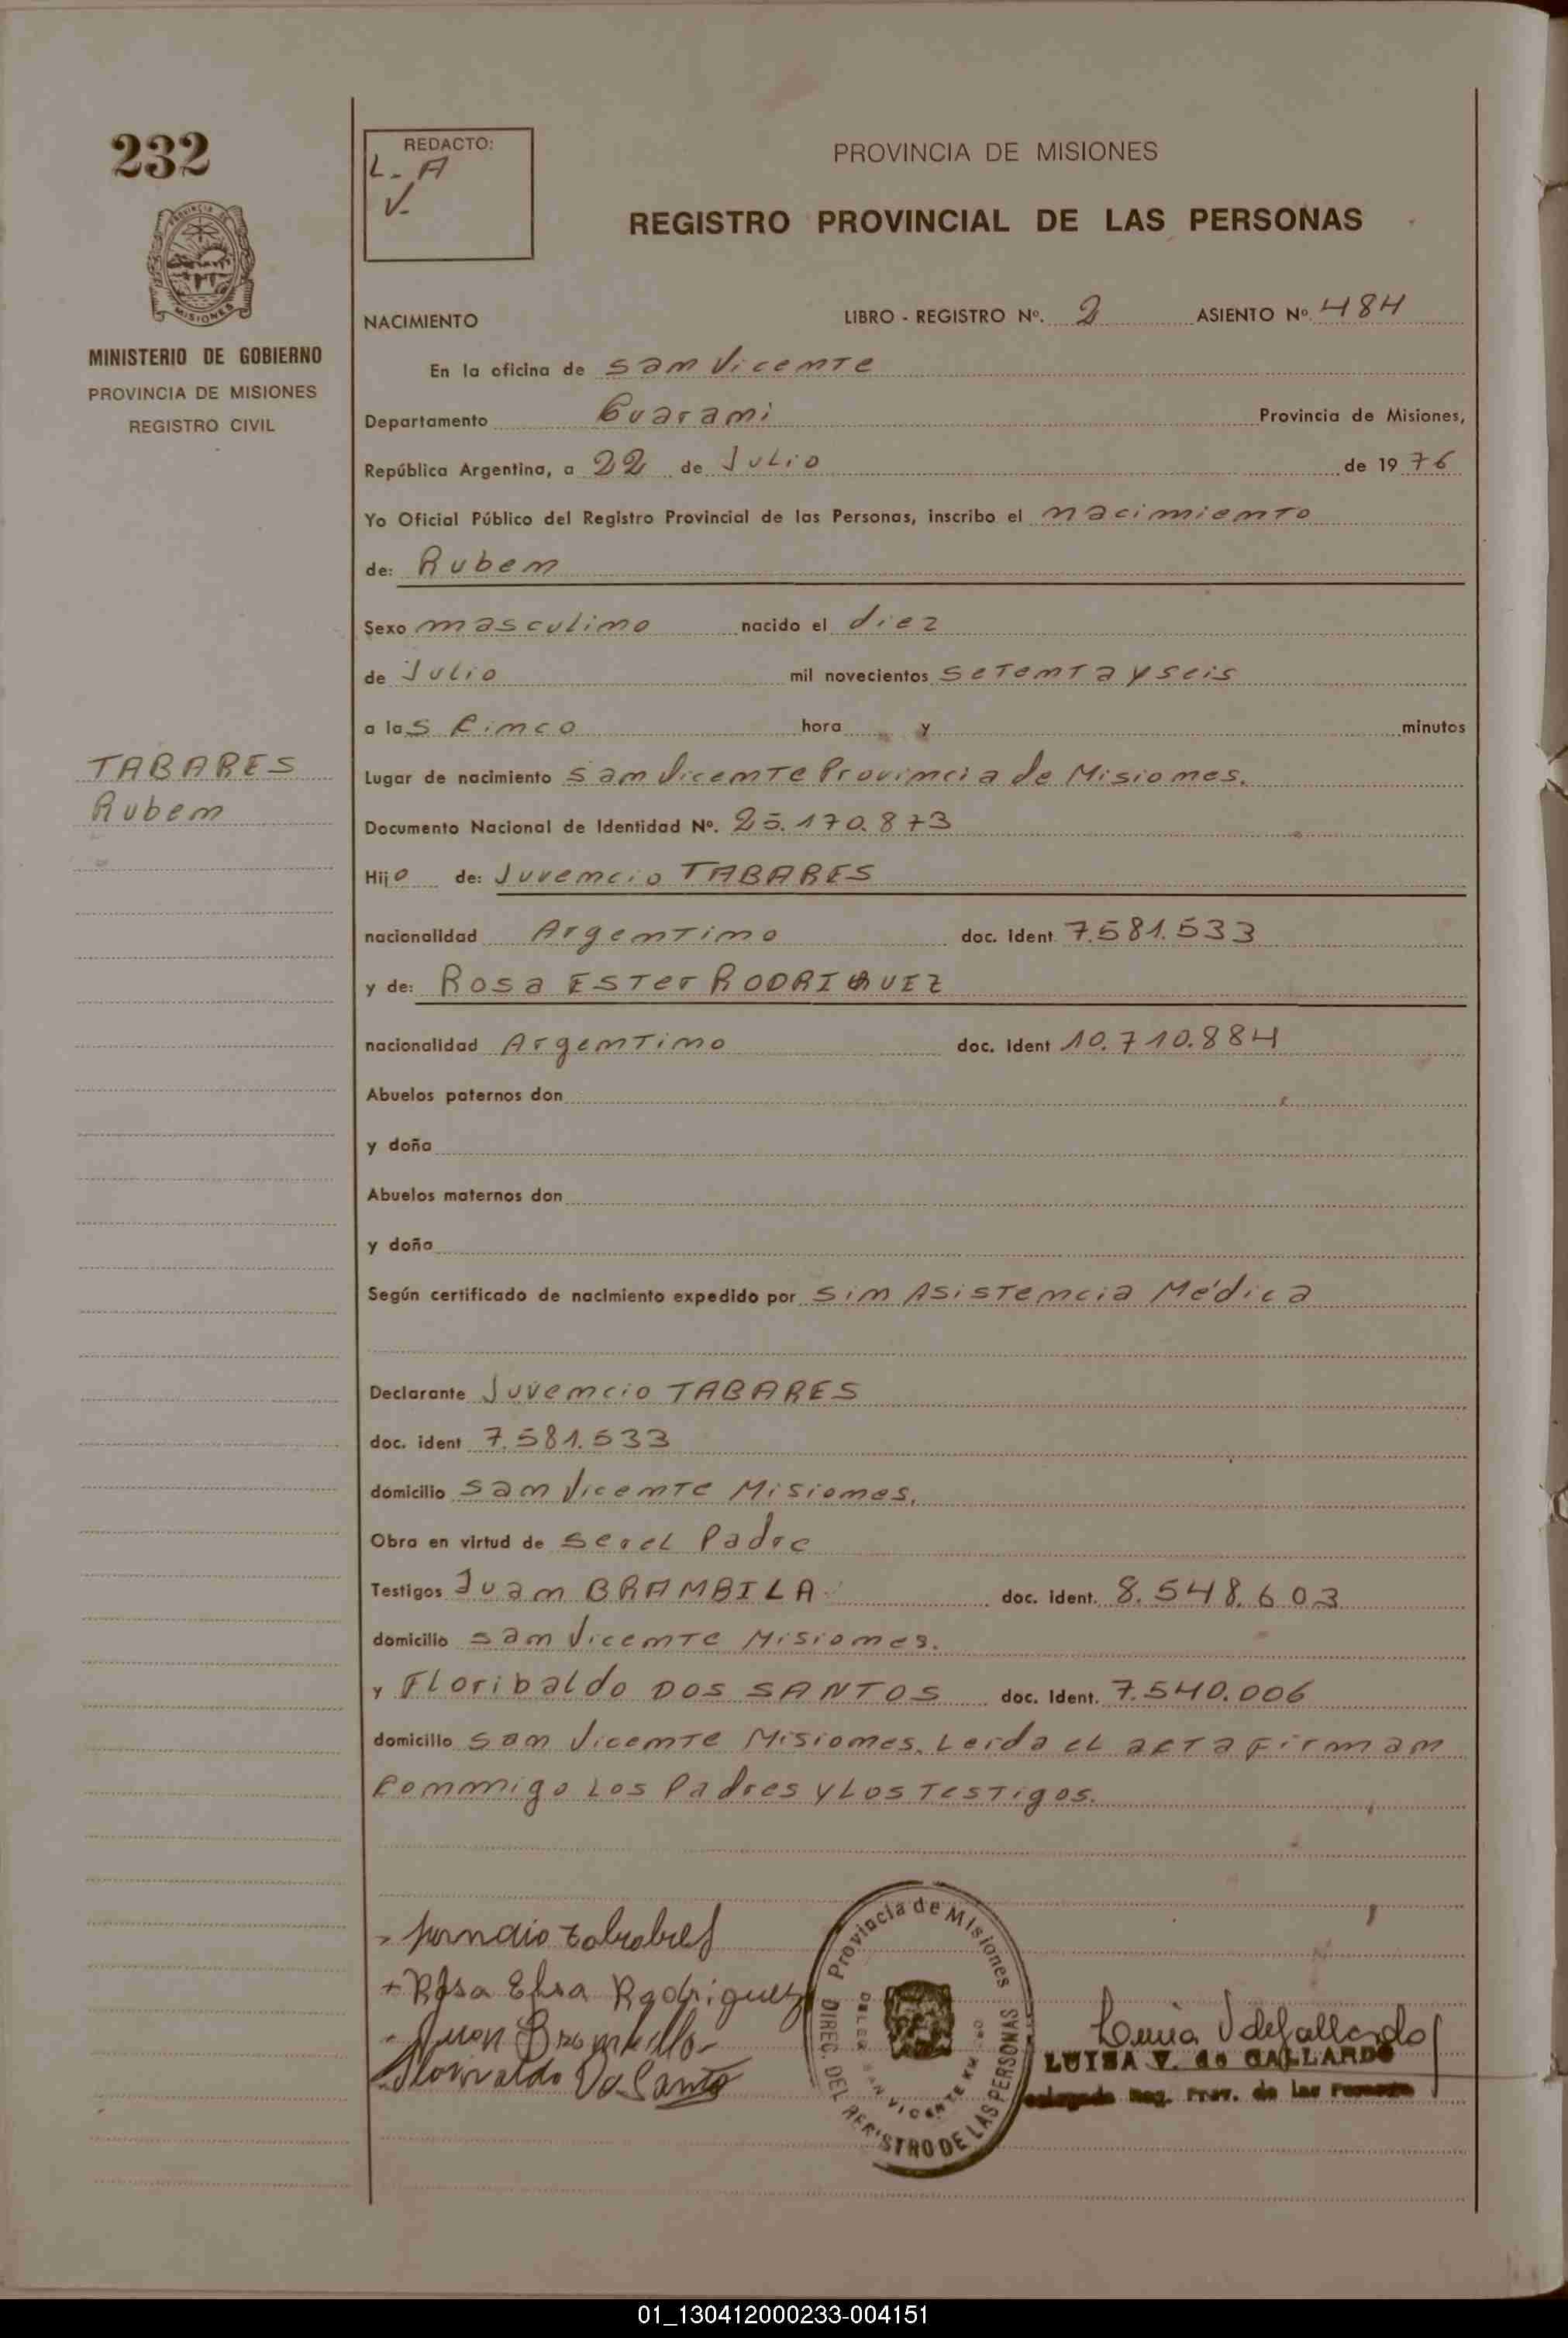 232
REDACTO:
L. A
V.
PROVINCIA DE MISIONES
REGISTRO PROVINCIAL DE LAS PERSONAS
PROVINCIA DE
MISIONES
MINISTERIO DE GOBIERNO
PROVINCIA DE MISIONES
REGISTRO CIVIL
NACIMIENTO LIBRO - REGISTRO Nº. 2 ASIENTO Nº 484
En la oficina de San Vicente
Departamento Guarani Provincia de Misiones,
República Argentina, a 22 de Julio de 1976
Yo Oficial Público del Registro Provincial de las Personas, inscribo el nacimiento
de: Ruben
Sexo masculino nacido el diez
de Julio mil novecientos setenta y seis
a las Cinco hora y minutos
TABARES
Ruben
Lugar de nacimiento San Vicente Provincia de Misiones.
Documento Nacional de Identidad Nº. 25.170.873
Hijo de: Juvencio TABARES
nacionalidad Argentino doc. Ident 7.581.533
y de: Rosa Ester RODRIGUEZ
nacionalidad Argentino doc. Ident 10.710.884
Abuelos paternos don
y doña
Abuelos maternos don
y doña
Según certificado de nacimiento expedido por Sin Asistencia Médica
Declarante Juvencio TABARES
doc. ident 7.581.533
domicilio San Vicente Misiones.
Obra en virtud de ser el Padre
Testigos Juan BRAMBILA doc. ident. 8.548.603
domicilio San Vicente Misiones.
y Floribaldo DOS SANTOS doc. Ident. 7.540.006
domicilio San Vicente Misiones. Leida el acta firman
Conmigo los Padres y los Testigos.
Rosa Elsa Rodriguez
Juan Brambilla
Provincia de Misiones
DIREC. DEL REGISTRO DE LAS PERSONAS
SAN VICENTE KM
LUISA V. de GALLARDO
Delegada Reg. Prov. de las Personas
01_130412000233-004151